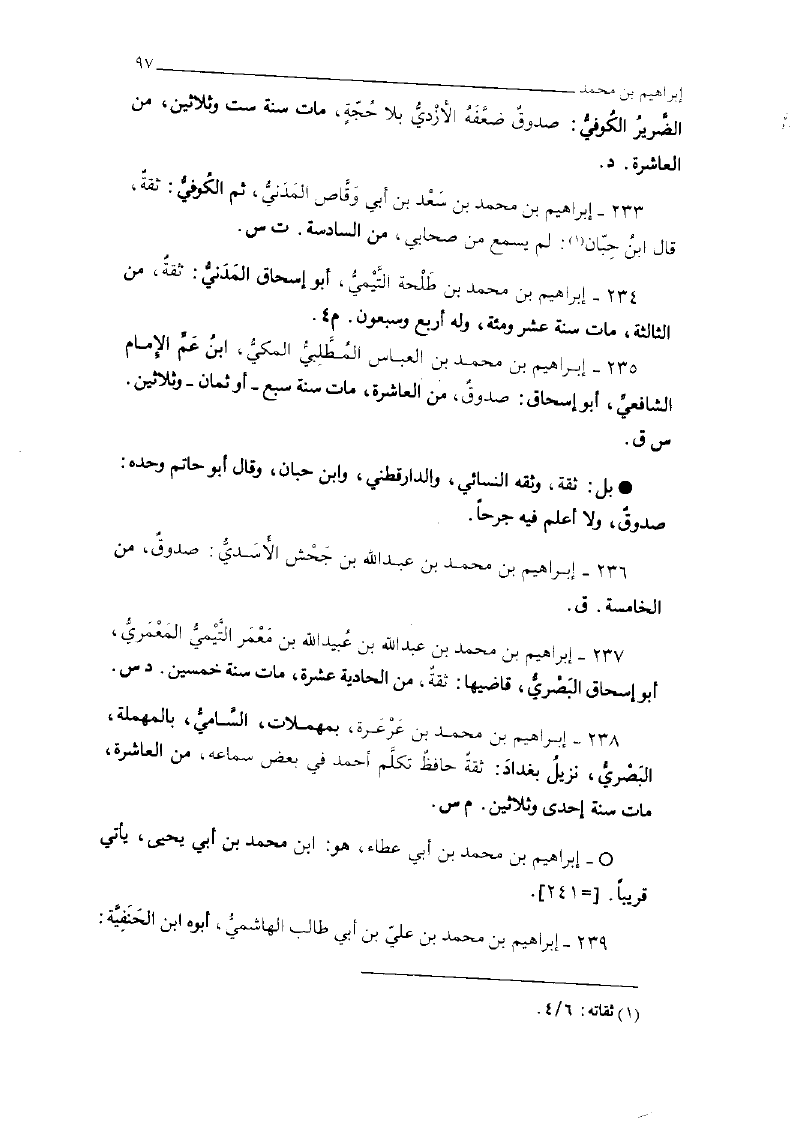 إبراهيم بن محمد ٩٧
الضَّريرُ الكُوفيُّ: صدوقٌ ضعَّفَهُ الأَزْديُّ بلا حُجّةٍ، مات سنة ست وثلاثين، من
العاشرة. د.
٢٣٣ ـ إبراهيم بن محمد بن سَعْد بن أبي وَقَّاص المَدَنيُّ، ثم الكُوفيُّ: ثقةٌ،
قال ابنُ حِبّان(١): لم يسمع من صحابي، من السادسة. ت س.
٢٣٤ ـ إبراهيم بن محمد بن طَلْحة التَّيْميُّ، أبو إسحاق المَدَنيُّ: ثقةٌ، من
الثالثة، مات سنة عشر ومئة، وله أربع وسبعون. م٤.
٢٣٥ ـ إبراهيم بن محمد بن العباس المُطَّلِبيُّ المكيُّ، ابنُ عَمِّ الإمام
الشافعيِّ، أبو إسحاق: صدوقٌ، من العاشرة، مات سنة سبع ـ أو ثمان ـ وثلاثين.
س ق.
● بل: ثقة، وثقه النسائي، والدارقطني، وابن حبان، وقال أبو حاتم وحده:
صدوقٌ، ولا أعلم فيه جرحاً.
٢٣٦ ـ إبراهيم بن محمد بن عبدالله بن جَحْش الأَسَديُّ: صدوقٌ، من
الخامسة. ق.
٢٣٧ ـ إبراهيم بن محمد بن عبدالله بن عُبيدالله بن مَعْمَر التَّيْميُّ المَعْمَريُّ،
أبو إسحاق البَصْريُّ، قاضيها: ثقةٌ، من الحادية عشرة، مات سنة خمسين. د س.
٢٣٨ ـ إبراهيم بن محمد بن عَرْعَرة، بمهملات، السَّاميُّ، بالمهملة،
البَصْريُّ، نزيلُ بغدادَ: ثقةٌ حافظٌ تكلَّم أحمد في بعض سماعه، من العاشرة،
مات سنة إحدى وثلاثين. م س.
○ ـ إبراهيم بن محمد بن أبي عطاء، هو: ابن محمد بن أبي يحيى، يأتي
قريباً. [=٢٤١].
٢٣٩ ـ إبراهيم بن محمد بن عليّ بن أبي طالب الهاشميُّ، أبوه ابن الحَنَفِيَّة:
(١) ثقاته: ٤/٦.